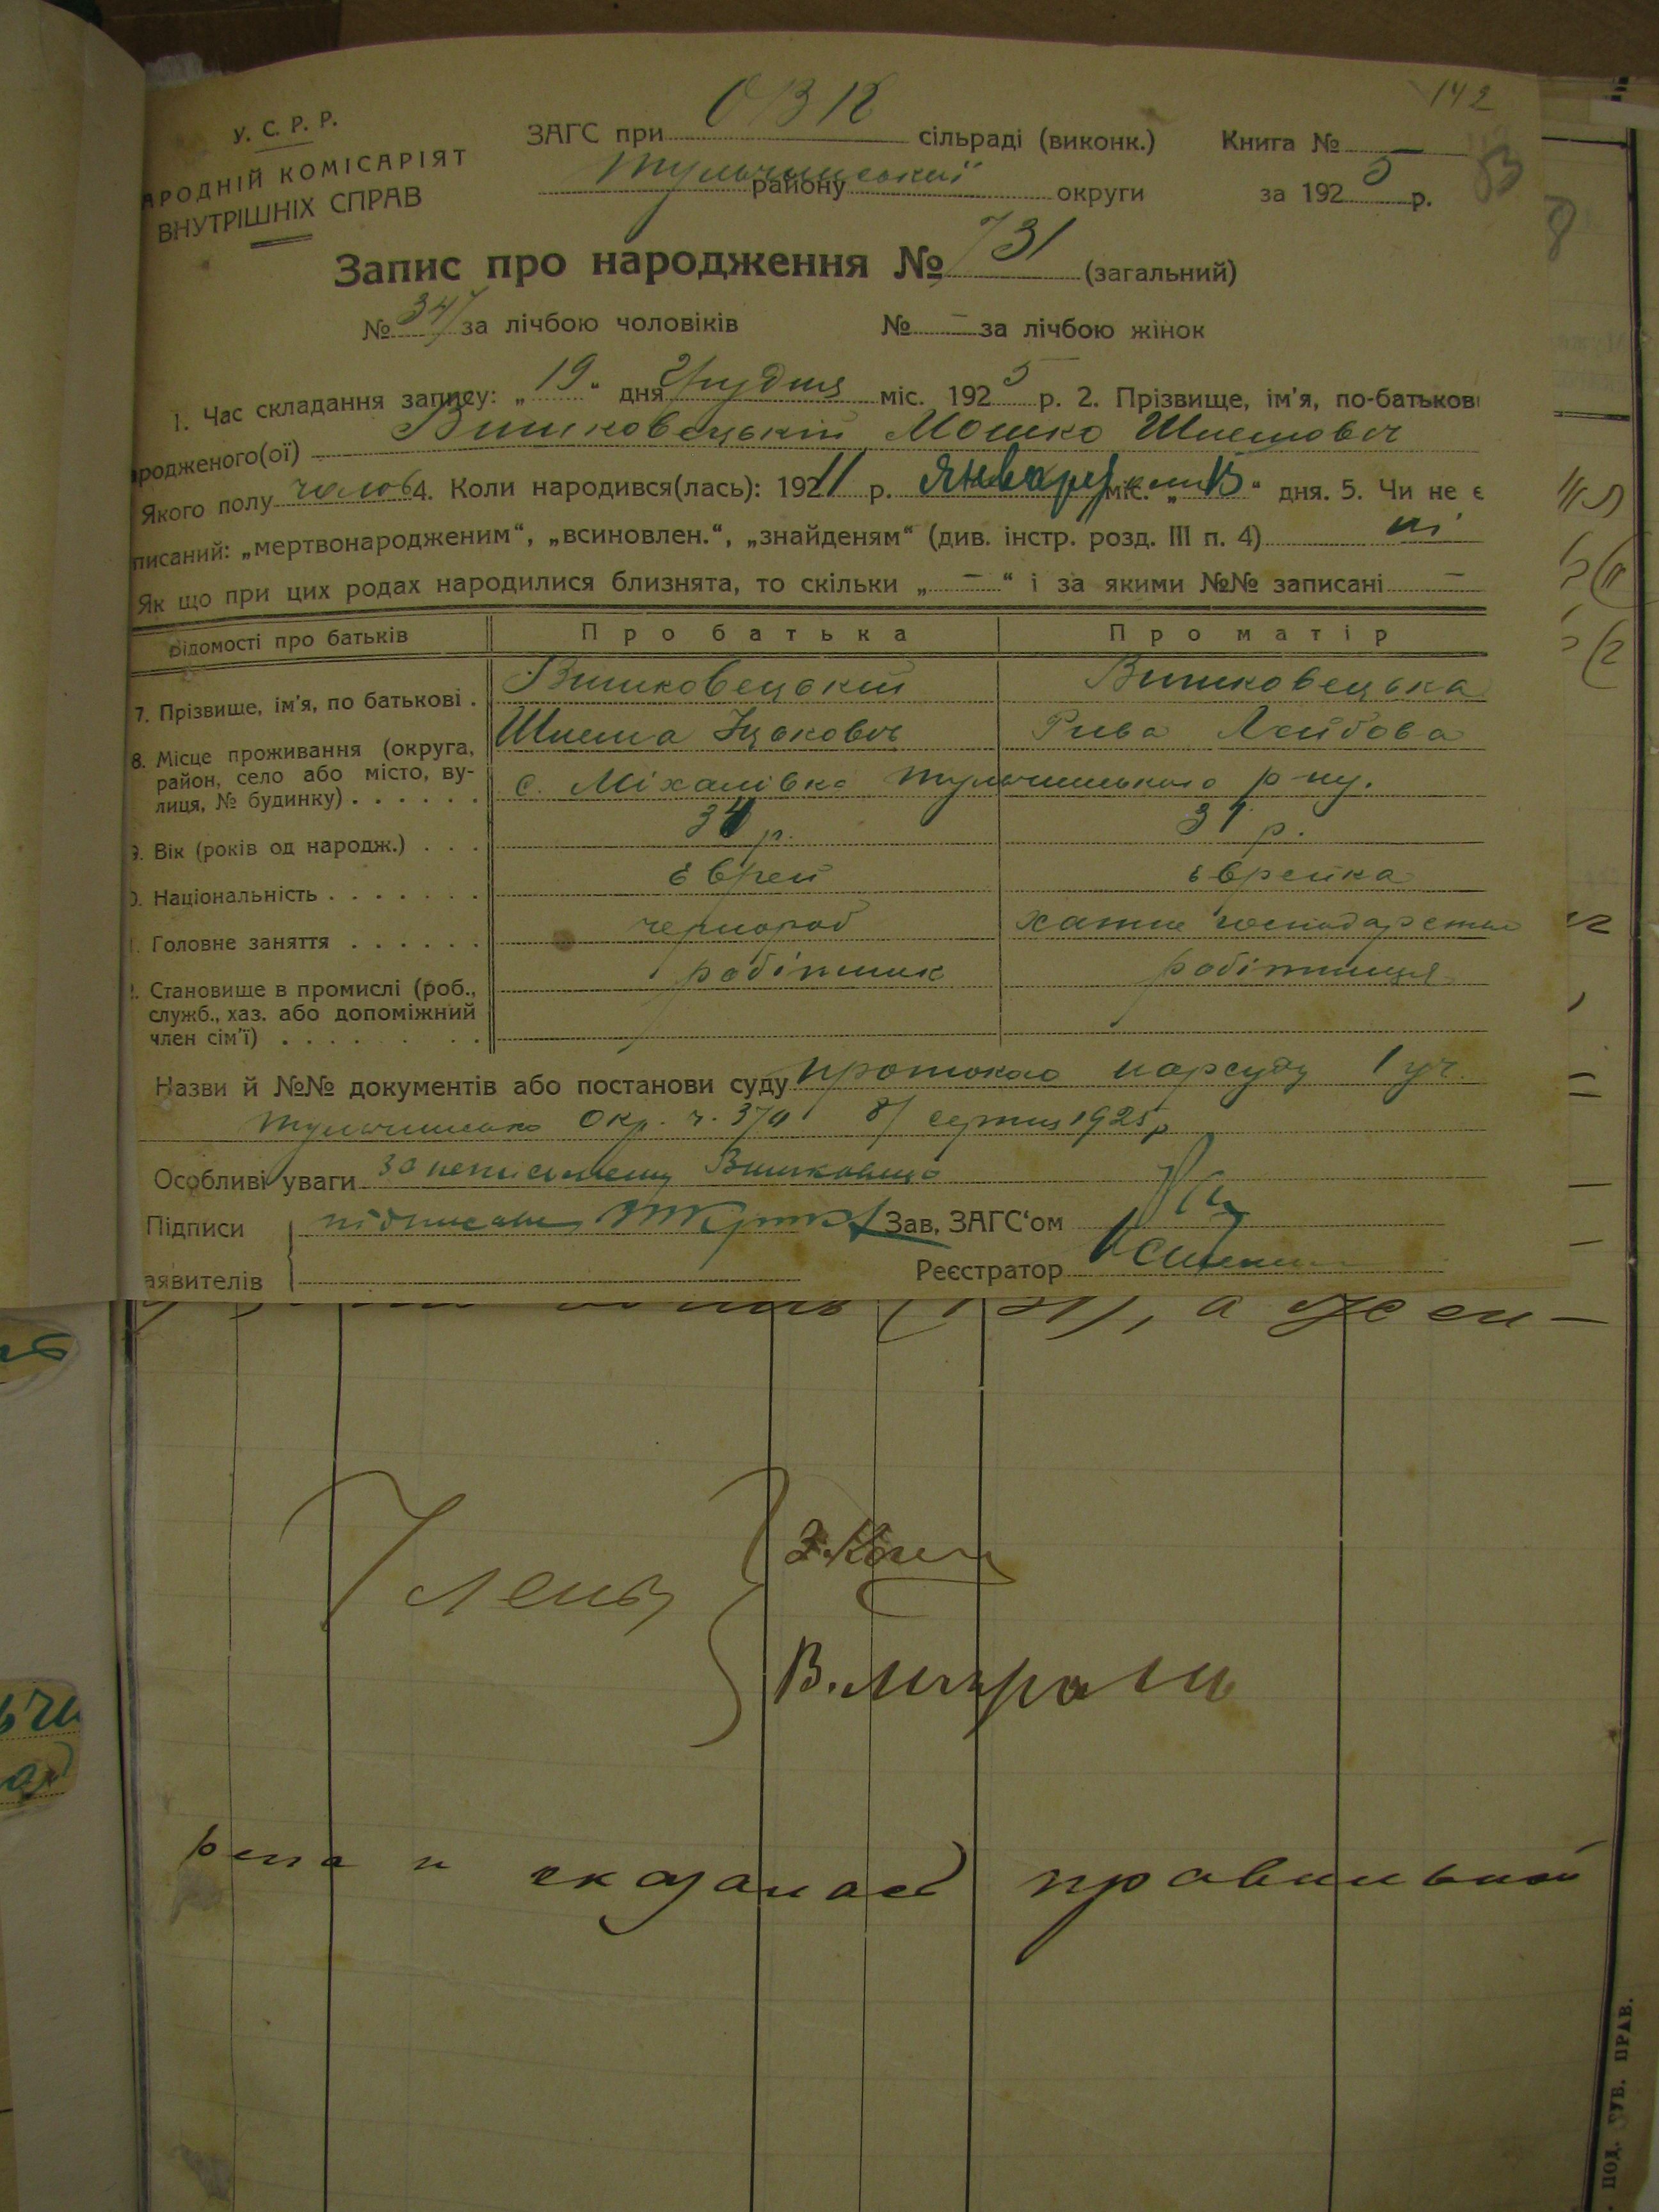 142
У. С. Р. Р.
АРОДНІЙ КОМІСАРІЯТ
ВНУТРІШНІХ СПРАВ
ЗАГС при ОВК сільраді (виконк.) Книга № —
Тульчинської району округи за 1925 р.
83
8
Запис про народження № 731 (загальний)
№ 347 за лічбою чоловіків № — за лічбою жінок
1. Час складання запису: „19“ дня Грудня міс. 1925 р. 2. Прізвище, ім'я, по-батькові
ародженого(ої) Вишковецький Мошко Шлемович
Якого полу чолов 4. Коли народився(лась): 19211 р. Января міс. „13“ дня. 5. Чи не є
писаний: „мертвонародженим“, „всиновлен.“, „знайденям“ (див. інстр. розд. III п. 4) ні
Як що при цих родах народилися близнята, то скільки „—“ і за якими №№ записані —
Відомості про батьків Про батька Про матір
7. Прізвише, ім'я, по батькові . Вишковецький Вишковецька
Шлема Іцькович Рива Лейбова
8. Місце проживання (округа,
район, село або місто, ву-
лиця, № будинку) . . . . . . с. Міхалівка Тульчинського р-ну.
9. Вік (років од народж.) . . . 34 р. 31 р.
Національність . . . . . . . єврей єврейка
Головне заняття . . . . . . чернороб хатне господарство
Становище в промислі (роб., робітник робітниця
служб., хаз. або допоміжний
член сім'ї) . . . . . . .
Назви й №№ документів або постанови суду протокол нарсуду 1 уч.
Тульчинсько Окр. ч. 8/ серпня 1925 р
Особливі уваги за неписьмену Вишковецьку
Підписи підписався Зав. ЗАГС‘ом
аявителів Реєстратор
Члены
а правильной
ПОД. СУВ. ПРАВ.